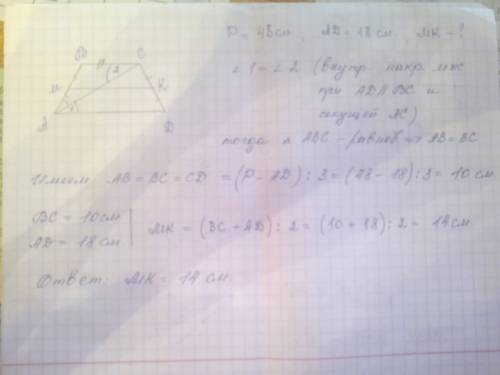 P = 48 см, AD = 18 см, MK - ?
B C
M K
A D
1 2
∠1 = ∠2 (внутр. накр. леж
при AD ∥ BC и
секущей AC)
тогда △ ABC - равноб. => AB = BC
Имеем AB = BC = CD = (P - AD) : 3 = (48 - 18) : 3 = 10 см
BC = 10 см
AD = 18 см
MK = (BC + AD) : 2 = (10 + 18) : 2 = 14 см
Ответ: MK = 14 см.